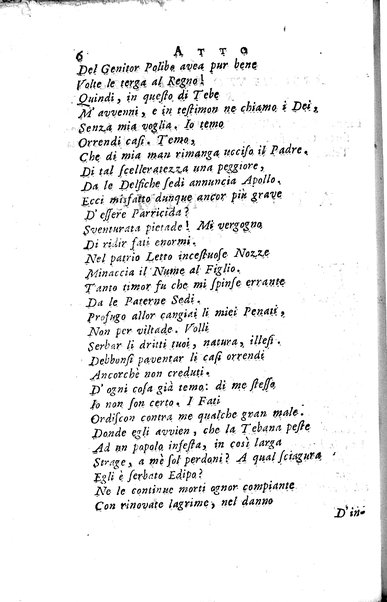 6 ATTO
Del Genitor Polibo avea pur bene
Volte le terga al Regno!
Quindi, in queſto di Tebe
M'avvenni, e in teſtimon ne chiamo i Dei,
Senza mia voglia. Io temo
Orrendi caſi. Temo,
Che di mia man rimanga ucciſo il Padre.
Di tal ſcelleratezza una peggiore,
Da le Delfiche ſedi annuncia Apollo.
Ecci misfatto dunque ancor più grave
D'eſſere Parricida?
Sventurata pietade! Mi vergogno
Di ridir fati enormi.
Nel patrio Letto inceſtuoſe Nozze
Minaccia il Nume al Figlio.
Tanto timor fu che mi ſpinſe errante
Da le Paterne Sedi.
Profugo allor cangiai li miei Penati,
Non per viltade. Volli
Serbar li dritti tuoi, natura, illeſi.
Debbonſi paventar li caſi orrendi
Ancorchè non creduti.
D'ogni coſa già temo: di me ſteſſo
Io non ſon certo. I Fati
Ordiſcon contra me qualche gran male.
Donde egli avvien, che la Tebana peſte
Ad un popolo infeſta, in così larga
Strage, a mè ſol perdoni? A qual ſciagura
Egli è ſerbato Edipo?
Ne le continue morti ognor compiante
Con rinovate lagrime, nel danno
D'in-